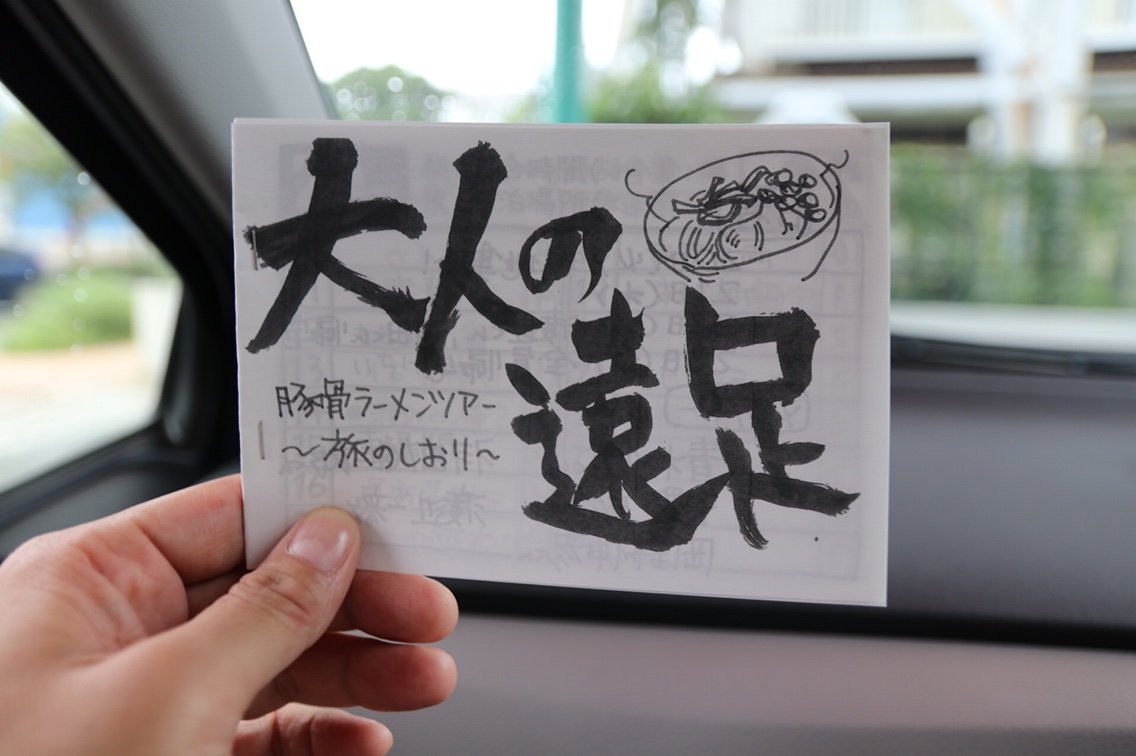 大人の
遠足
豚骨ラーメンツアー
〜旅のしおり〜